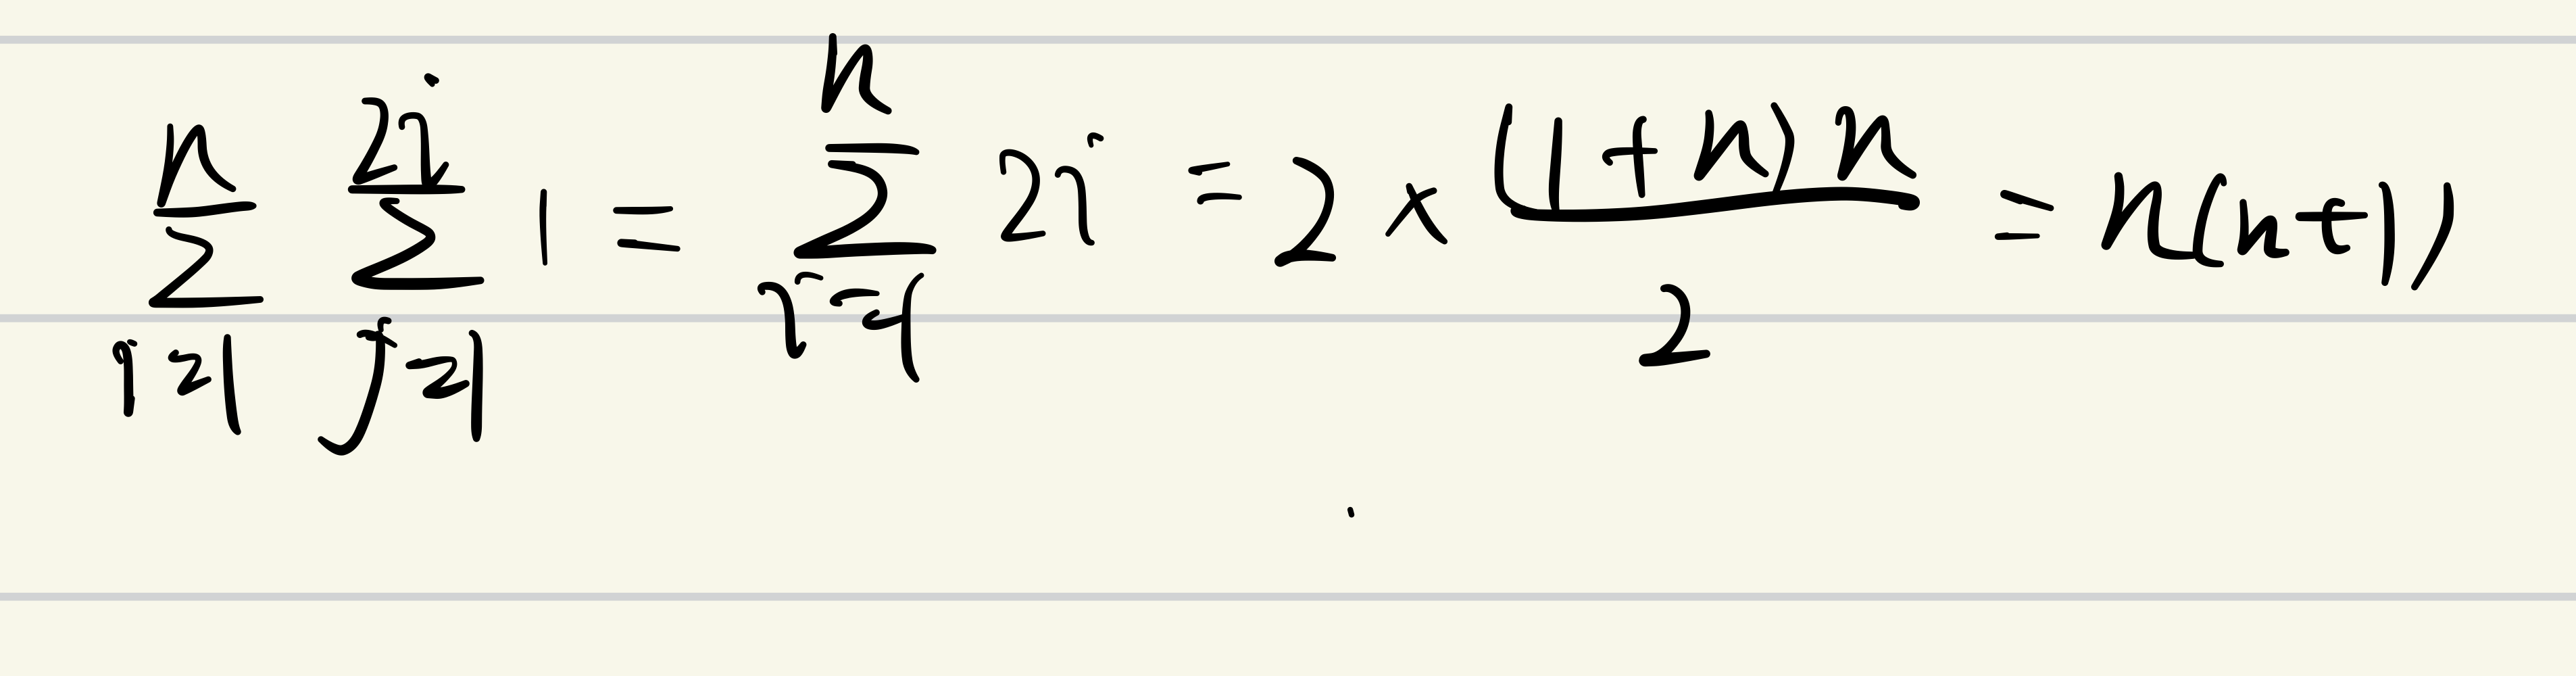 $\sum_{i=1}^{n} \sum_{j=1}^{2i} 1 = \sum_{i=1}^{n} 2i = 2 \times \frac{(1+n)n}{2} = n(n+1)$